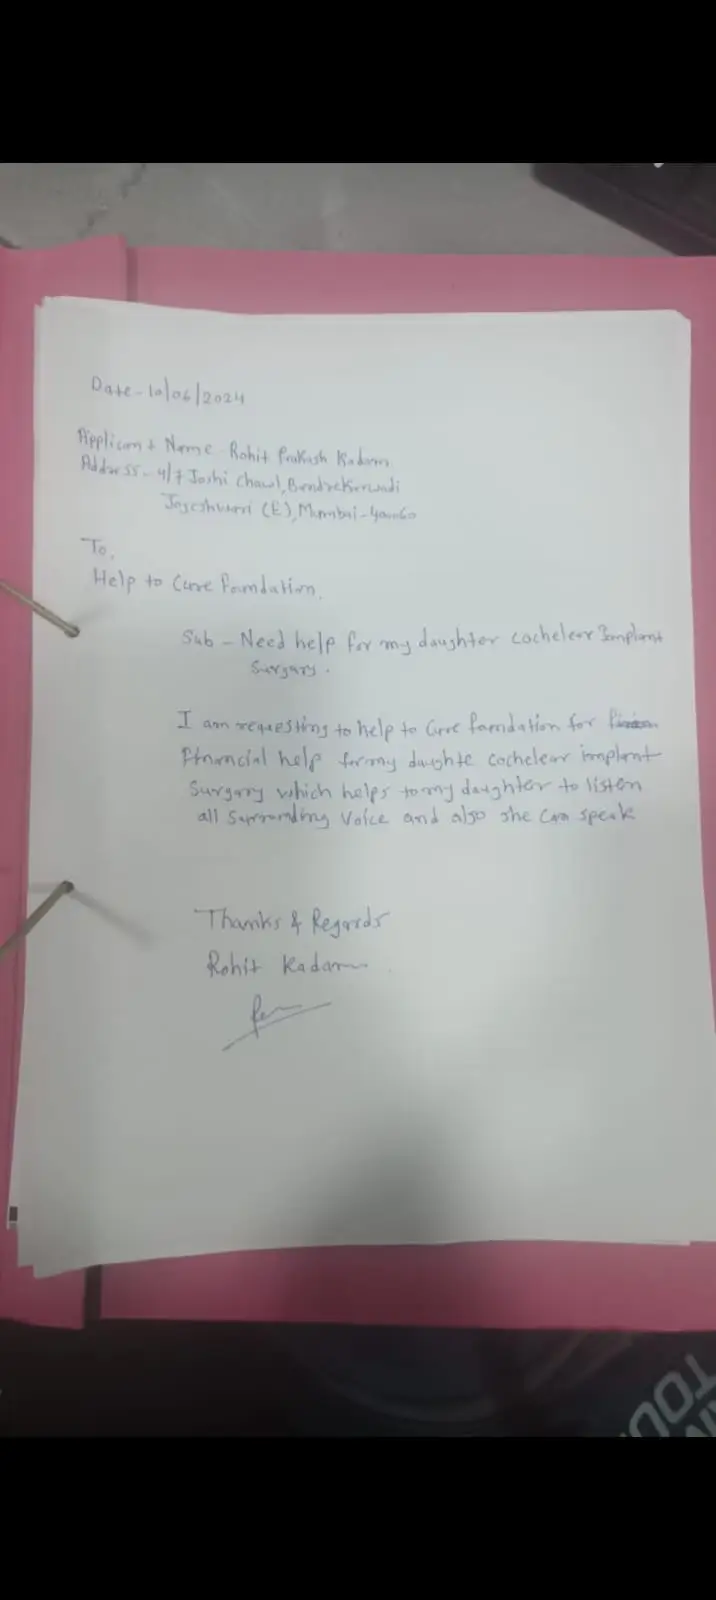 Date - 10/06/2024
Applicant Name - Rohit Prakash Kadam
Address - 4/7 Joshi Chawl, Bandrekarwadi
Jogeshwari (E), Mumbai - 400060
To,
Help to Cure Foundation.
Sub - Need help for my daughter cochelear Implant
Surgary.
I am requesting to help to Cure foundation for
financial help for my daughte cochelear implant
Surgary which helps to my daughter to listen
all Surrounding Voice and also she can speak
Thanks & Regards
Rohit Kadam